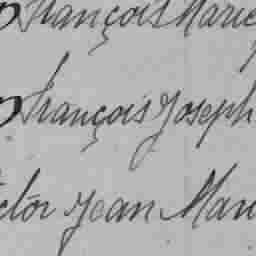 François Marie
François Joseph
ctor Jean Mari